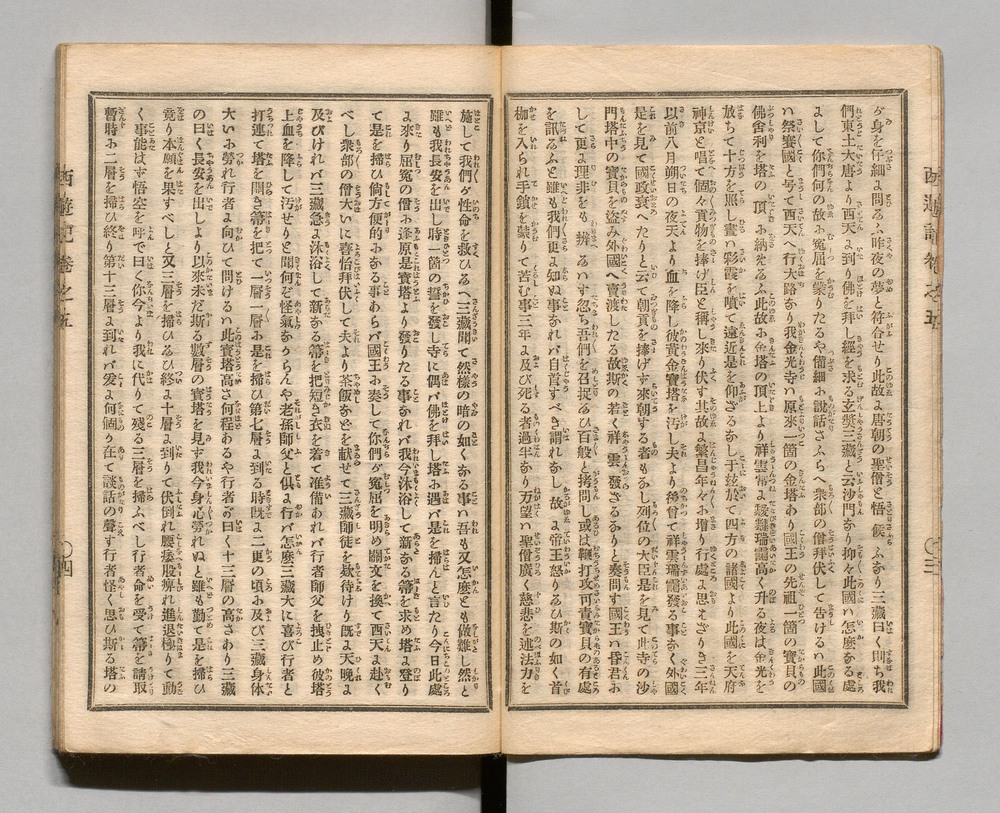 西遊記卷之五 〇三
ゟ身を仔細よ問るふ昨夜の夢と符合せり此故よ唐朝の聖僧と悟候ふあり三藏曰く問ち我
們東土大唐より西天よ到り佛を拜し經を求る玄奘三藏と云沙門あり抑々此國ハ怎麼ある處
よして你們何の故お冤屈を蒙りたるや備細お說話さふらへ衆部の僧拜伏して告けるハ此國
ハ祭賽國と号て西天へ行大路あり我金光寺ハ原來一箇の金塔あり國王の先祖一箇の寶貝の
佛舍利を塔の頂お納めるふ此故お金塔の頂上より祥雲常よ靉靆瑞靄高く升る夜は金光を
放ちて十方を照し晝ハ彩霞を噴て遠近是を仰ざるあし于玆於て四方の諸國より此國を天府
神京と唱て個々貢物を捧げ臣と稱し來り伏す其故よ繁昌年々お增り行處よ思えざりき三年
以前八月朔日の夜天より血を降し彼黃金寶塔を汚し夫より徬曾て祥雲瑞靄發る事あく外國
是を見て國政衰へたりと云て朝貢を捧げす來朝する者もあし列位の大臣是を見て此寺の沙
門塔中の寶貝を盜み外國へ賣渡したる故斯の若く祥雲發さるありと奏問す國王ハ昏君お
して更よ理非をも辨へるハす忽ち吾們を召捉るひ百般と拷問し或は鞭打攻可責寶貝の有處
を訊るふと雖も我們更よ知ぬ事あれバ自首すべき謂れあし故よ帝王怒りるひ斯の如く首
枷を入られ手鎖を蒙りて苦む事三年よ及び死る者過半あり万望ハ聖僧廣く慈悲を垂法力を
施して我們ゟ性命を救ひるへ三藏聞て然樣の暗の如くある事ハ吾も又怎麼とも做難し然と
雖も我長安を出し時一箇の誓を發し寺に偶バ佛を拜し塔お遇バ是を掃んと言たり今日此處
よ來り屈冤の僧お逢原是寶塔より發りたる事あれバ我今沐浴して新ある箒を求め塔よ登り
て是を掃ひ倘方便的おある事あらバ國王お奏して你們ゟ冤屈を明め關文を換て西天よ赴く
べし衆部の僧大いに喜悅拜伏して夫より茶飯あどを献せて三藏師徒を欵待けり既よ天晚よ
及びければバ三藏急よ沐浴して新ある箒を把短き衣を着て准備あれバ行者師父を拽止め彼塔
上血を降して汚せりと聞何ぞ怪氣ありらんや老孫師父と俱よ行バ怎麼三藏大に喜び行者と
打連て塔を開き箒を把て一層二層お是を掃ひ第七層よ到る時既よ二更の頃お及び三藏身体
大いお勞れ行者よ向ひて問けるハ此寶塔高さ何程あるや行者ゟ曰く十三層の高さあり三藏
の曰く長安を出しより以來未だ斯る數層の寶塔を見す我今身心勞れぬと雖も勤て是を掃ひ
竟り本願を果すべしと又三層を掃ひるひ終よ十層よ到りて伏倒れ腰痿股痹れ進退極りて動
く事能はず悟空を呼で曰く你今より我に代りて殘る三層を掃ふべし行者命を受て箒を請取
暫時お二層を掃ひ終り第十三層よ到れバ爰よ何個り在て談話の聲す行者怪く忍び斯る塔の
西遊記卷之五 〇四